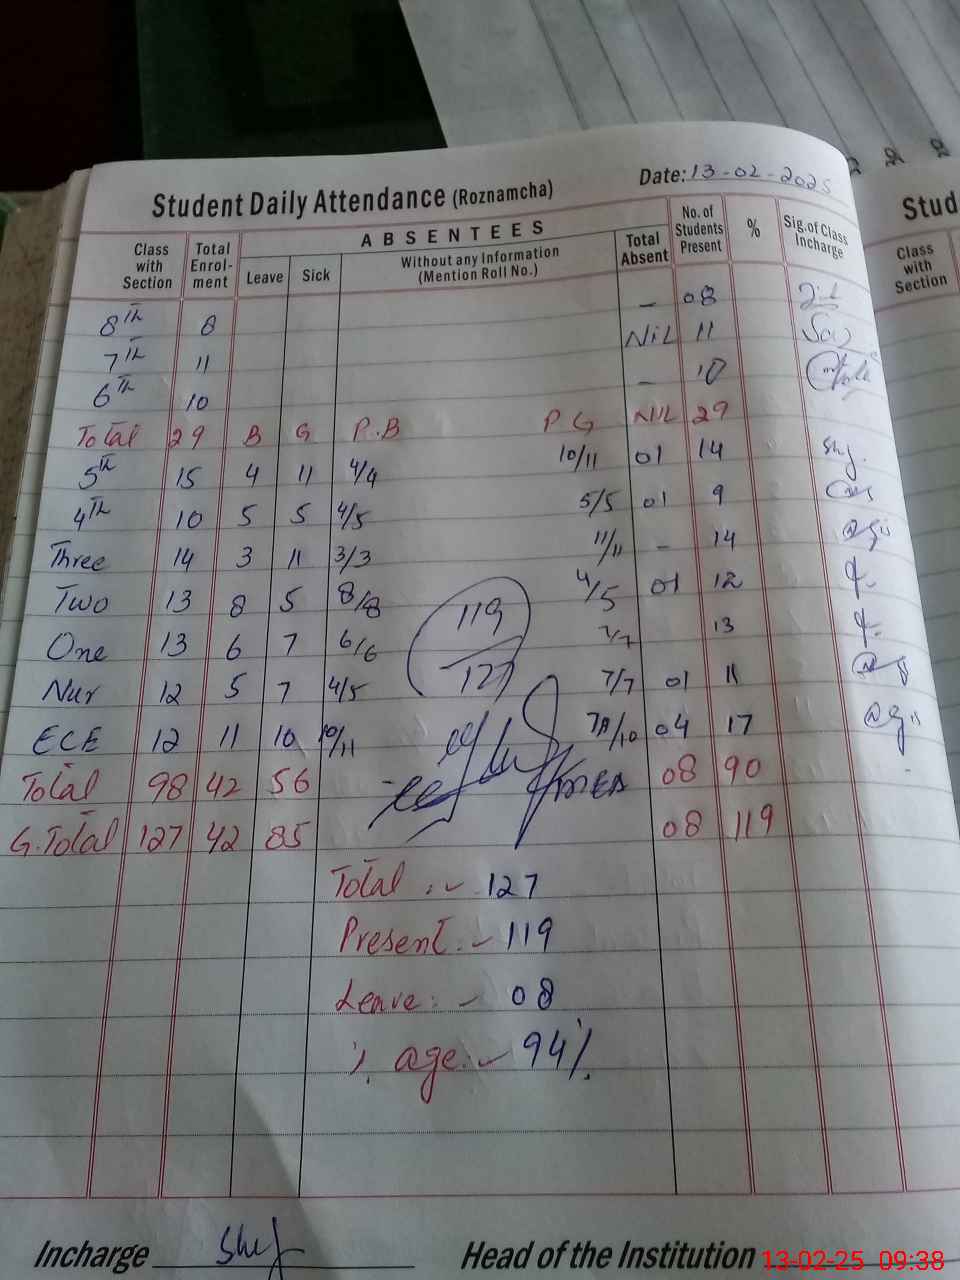 Student Daily Attendance (Roznamcha) Date: 13-02-2025
Class with Section Total Enrol-ment ABSENTEES No. of Students Present % Sig. of Class Incharge
Leave Sick Without any Information (Mention Roll No.) Total Absent
8th 8 – 08
7th 11 NiL 11
6th 10 – 10
Total 29 B G P.B P G NIL 29
5th 15 4 11 4/4 10/11 01 14
4th 10 5 5 4/5 5/5 01 9
Three 14 3 11 3/3 11/11 – 14
Two 13 8 5 8/8 4/5 01 12
One 13 6 7 6/6 7/7 13
Nur 12 5 7 4/5 7/7 01 11
ECE 12 11 10 10/11 /10 04 17
119
127
Total 98 42 56 08 90
G.Total 127 42 85 08 119
Total :- 127
Present :- 119
Leave :- 08
% age :- 94%
Incharge Head of the Institution
Stud
Class with Section
13-02-25 09:38